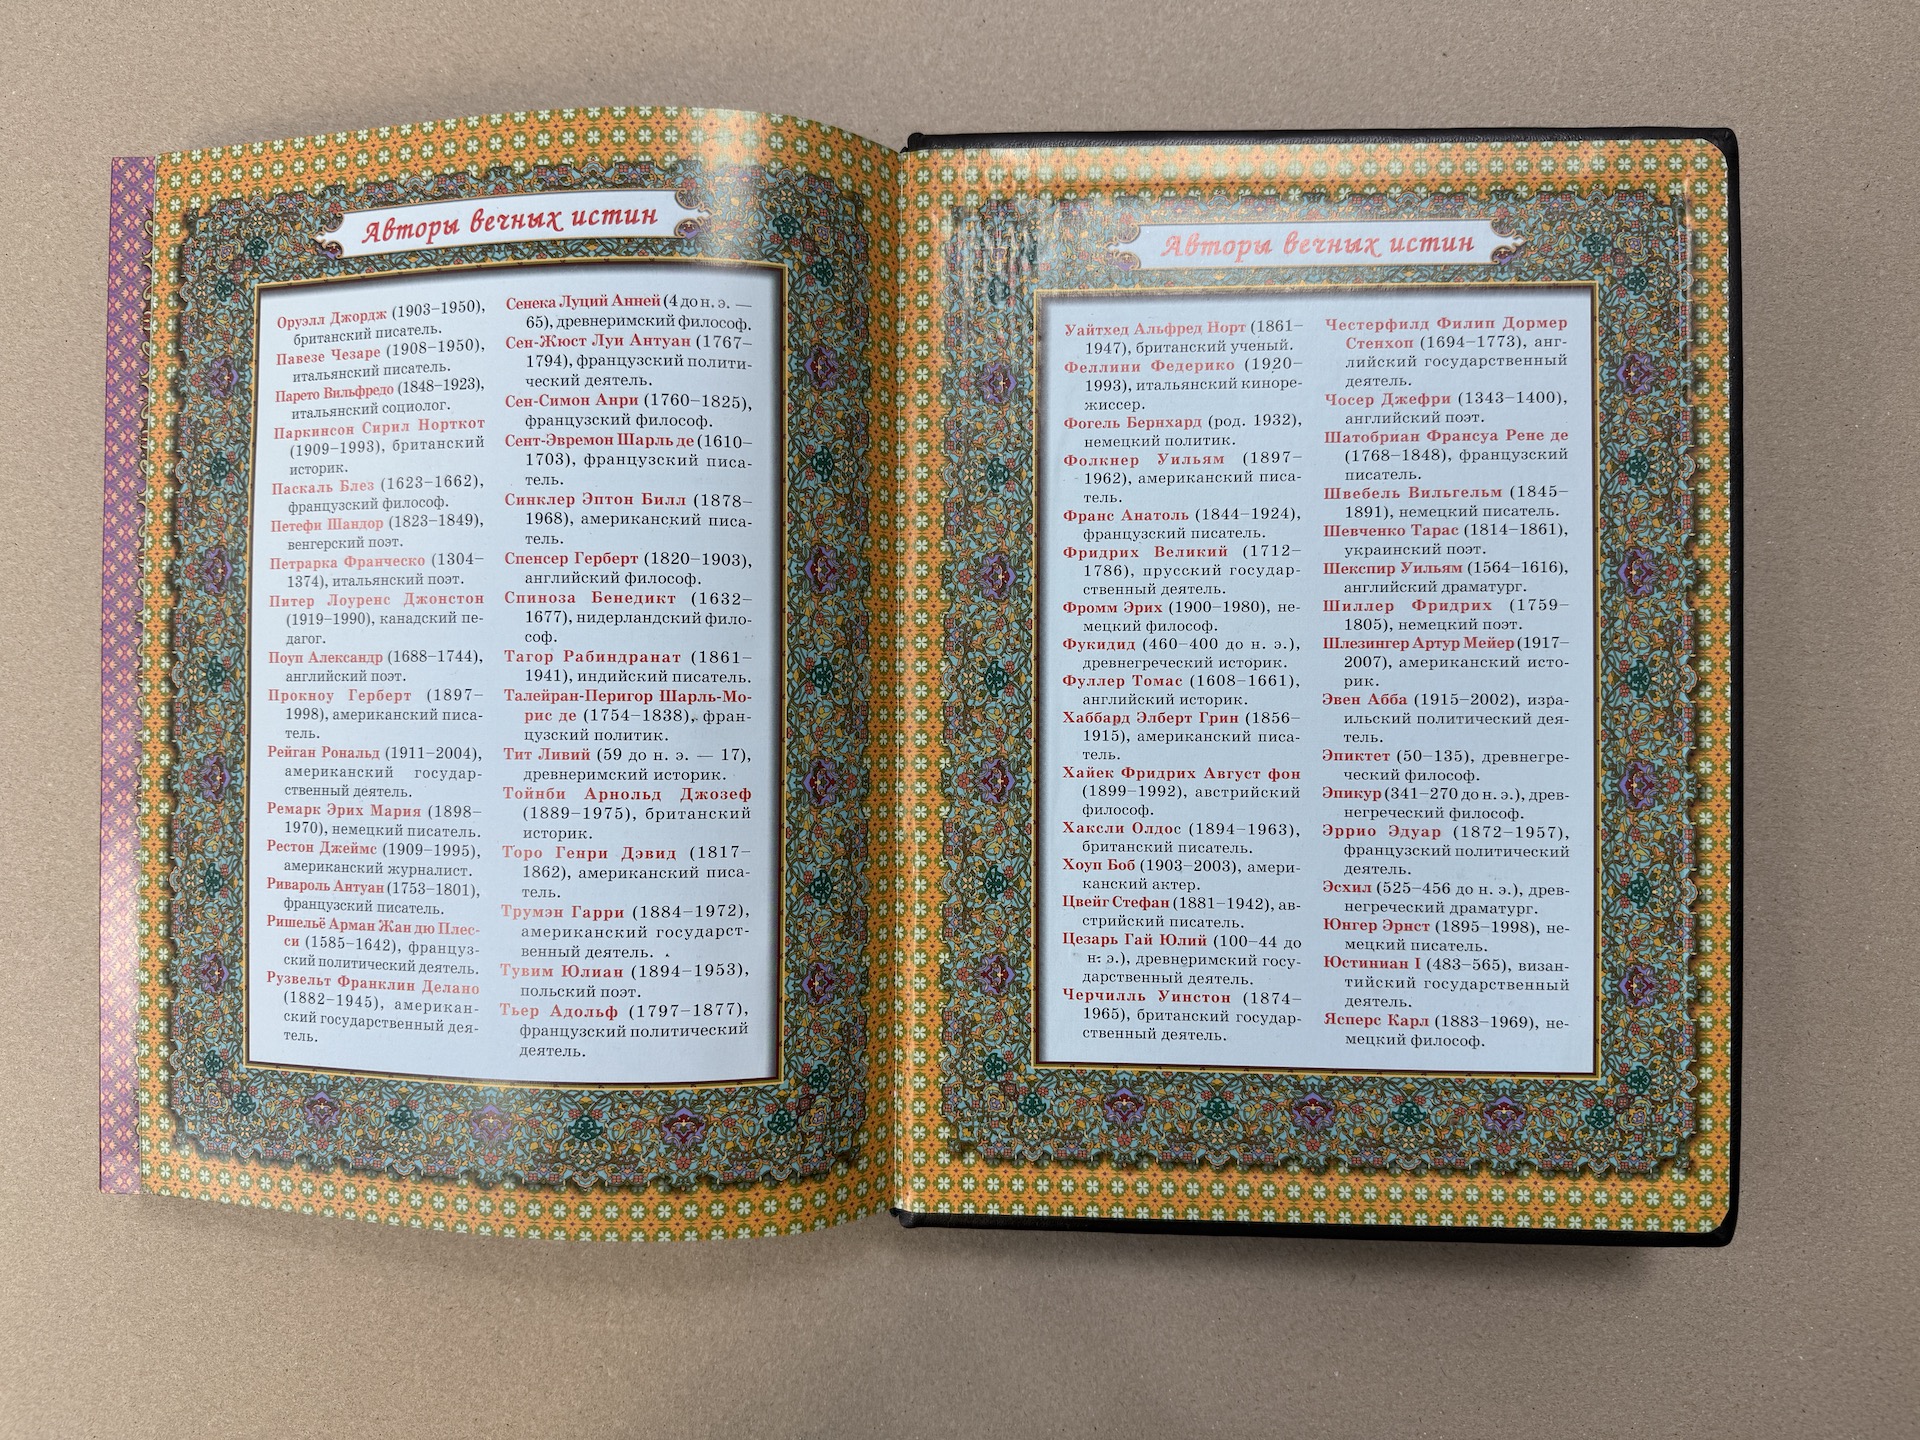 Авторы вечных истин
Оруэлл Джордж (1903–1950),
британский писатель.
Павезе Чезаре (1908–1950),
итальянский писатель.
Парето Вильфредо (1848–1923),
итальянский социолог.
Паркинсон Сирил Норткот
(1909–1993), британский
историк.
Паскаль Блез (1623–1662),
французский философ.
Петефи Шандор (1823–1849),
венгерский поэт.
Петрарка Франческо (1304–
1374), итальянский поэт.
Питер Лоуренс Джонстон
(1919–1990), канадский пе-
дагог.
Поуп Александр (1688–1744),
английский поэт.
Прокноу Герберт (1897–
1998), американский писа-
тель.
Рейган Рональд (1911–2004),
американский государ-
ственный деятель.
Ремарк Эрих Мария (1898–
1970), немецкий писатель.
Рестон Джеймс (1909–1995),
американский журналист.
Ривароль Антуан (1753–1801),
французский писатель.
Ришельё Арман Жан дю Плес-
си (1585–1642), француз-
ский политический деятель.
Рузвельт Франклин Делано
(1882–1945), американ-
ский государственный дея-
тель.
Сенека Луций Анней (4 до н. э. —
65), древнеримский философ.
Сен-Жюст Луи Антуан (1767–
1794), французский полити-
ческий деятель.
Сен-Симон Анри (1760–1825),
французский философ.
Сент-Эвремон Шарль де (1610–
1703), французский писа-
тель.
Синклер Эптон Билл (1878–
1968), американский писа-
тель.
Спенсер Герберт (1820–1903),
английский философ.
Спиноза Бенедикт (1632–
1677), нидерландский фило-
соф.
Тагор Рабиндранат (1861–
1941), индийский писатель.
Талейран-Перигор Шарль-Мо-
рис де (1754–1838), фран-
цузский политик.
Тит Ливий (59 до н. э. — 17),
древнеримский историк.
Тойнби Арнольд Джозеф
(1889–1975), британский
историк.
Торо Генри Дэвид (1817–
1862), американский писа-
тель.
Трумэн Гарри (1884–1972),
американский государст-
венный деятель.
Тувим Юлиан (1894–1953),
польский поэт.
Тьер Адольф (1797–1877),
французский политический
деятель.
Авторы вечных истин
Уайтхед Альфред Норт (1861–
1947), британский ученый.
Феллини Федерико (1920–
1993), итальянский киноре-
жиссер.
Фогель Бернхард (род. 1932),
немецкий политик.
Фолкнер Уильям (1897–
1962), американский писа-
тель.
Франс Анатоль (1844–1924),
французский писатель.
Фридрих Великий (1712–
1786), прусский государ-
ственный деятель.
Фромм Эрих (1900–1980), не-
мецкий философ.
Фукидид (460–400 до н. э.),
древнегреческий историк.
Фуллер Томас (1608–1661),
английский историк.
Хаббард Элберт Грин (1856–
1915), американский писа-
тель.
Хайек Фридрих Август фон
(1899–1992), австрийский
философ.
Хаксли Олдос (1894–1963),
британский писатель.
Хоуп Боб (1903–2003), амери-
канский актер.
Цвейг Стефан (1881–1942), ав-
стрийский писатель.
Цезарь Гай Юлий (100–44 до
н. э.), древнеримский госу-
дарственный деятель.
Черчилль Уинстон (1874–
1965), британский государ-
ственный деятель.
Честерфилд Филип Дормер
Стенхоп (1694–1773), анг-
лийский государственный
деятель.
Чосер Джефри (1343–1400),
английский поэт.
Шатобриан Франсуа Рене де
(1768–1848), французский
писатель.
Швебель Вильгельм (1845–
1891), немецкий писатель.
Шевченко Тарас (1814–1861),
украинский поэт.
Шекспир Уильям (1564–1616),
английский драматург.
Шиллер Фридрих (1759–
1805), немецкий поэт.
Шлезингер Артур Мейер (1917–
2007), американский исто-
рик.
Эвен Абба (1915–2002), изра-
ильский политический дея-
тель.
Эпиктет (50–135), древнегре-
ческий философ.
Эпикур (341–270 до н. э.), древ-
негреческий философ.
Эррио Эдуар (1872–1957),
французский политический
деятель.
Эсхил (525–456 до н. э.), древ-
негреческий драматург.
Юнгер Эрнст (1895–1998), не-
мецкий писатель.
Юстиниан I (483–565), визан-
тийский государственный
деятель.
Ясперс Карл (1883–1969), не-
мецкий философ.